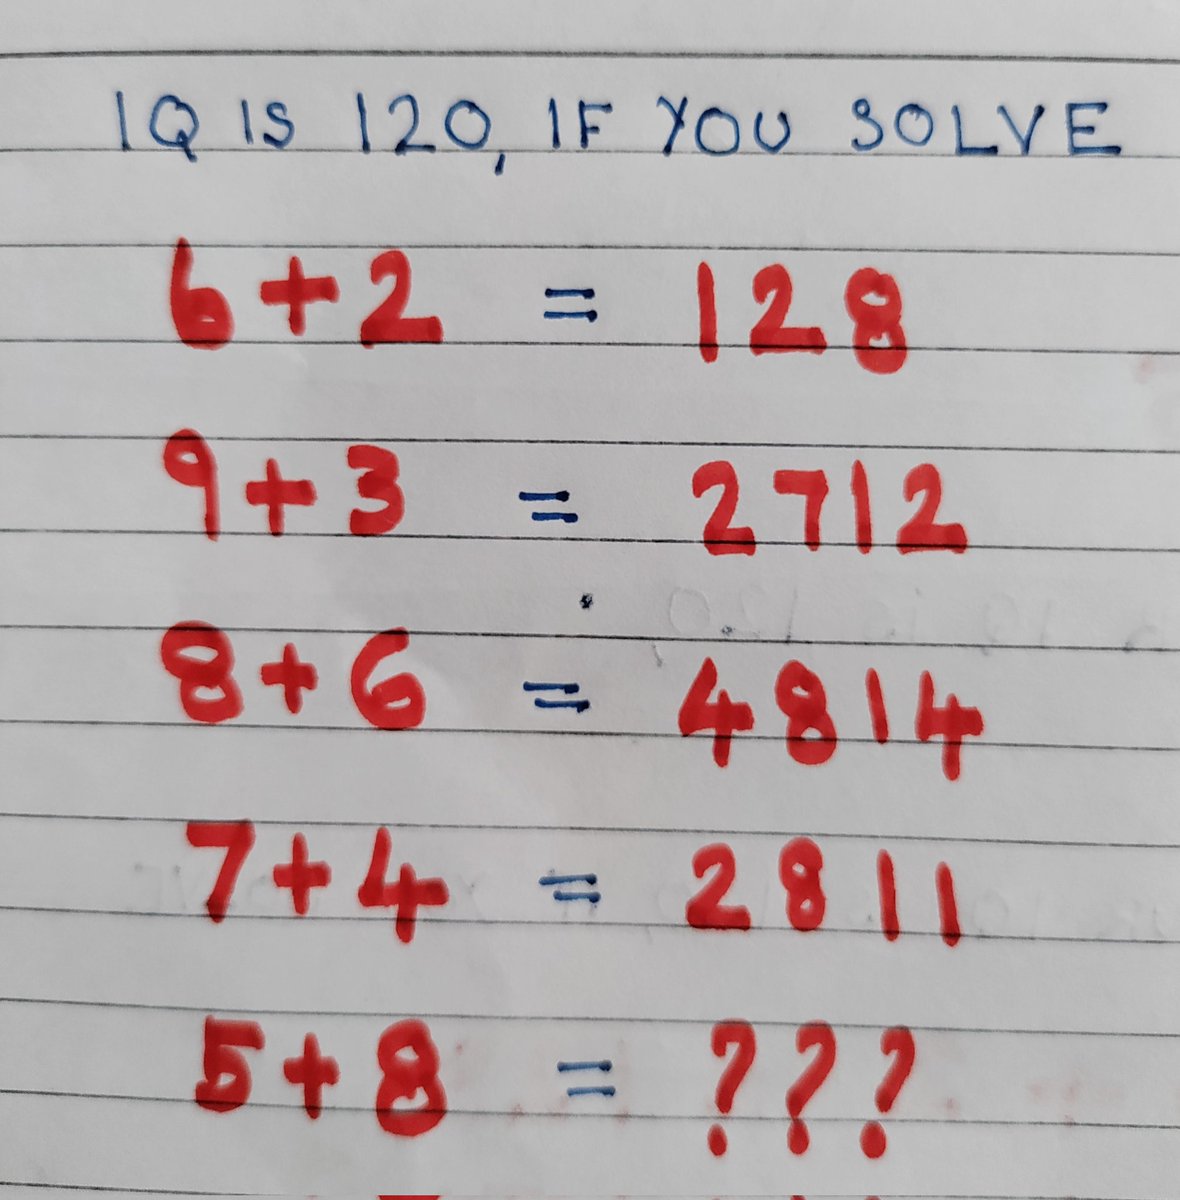 IQ IS 120, IF YOU SOLVE
6+2 = 128
9+3 = 2712
8+6 = 4814
7+4 = 2811
5+8 = ???